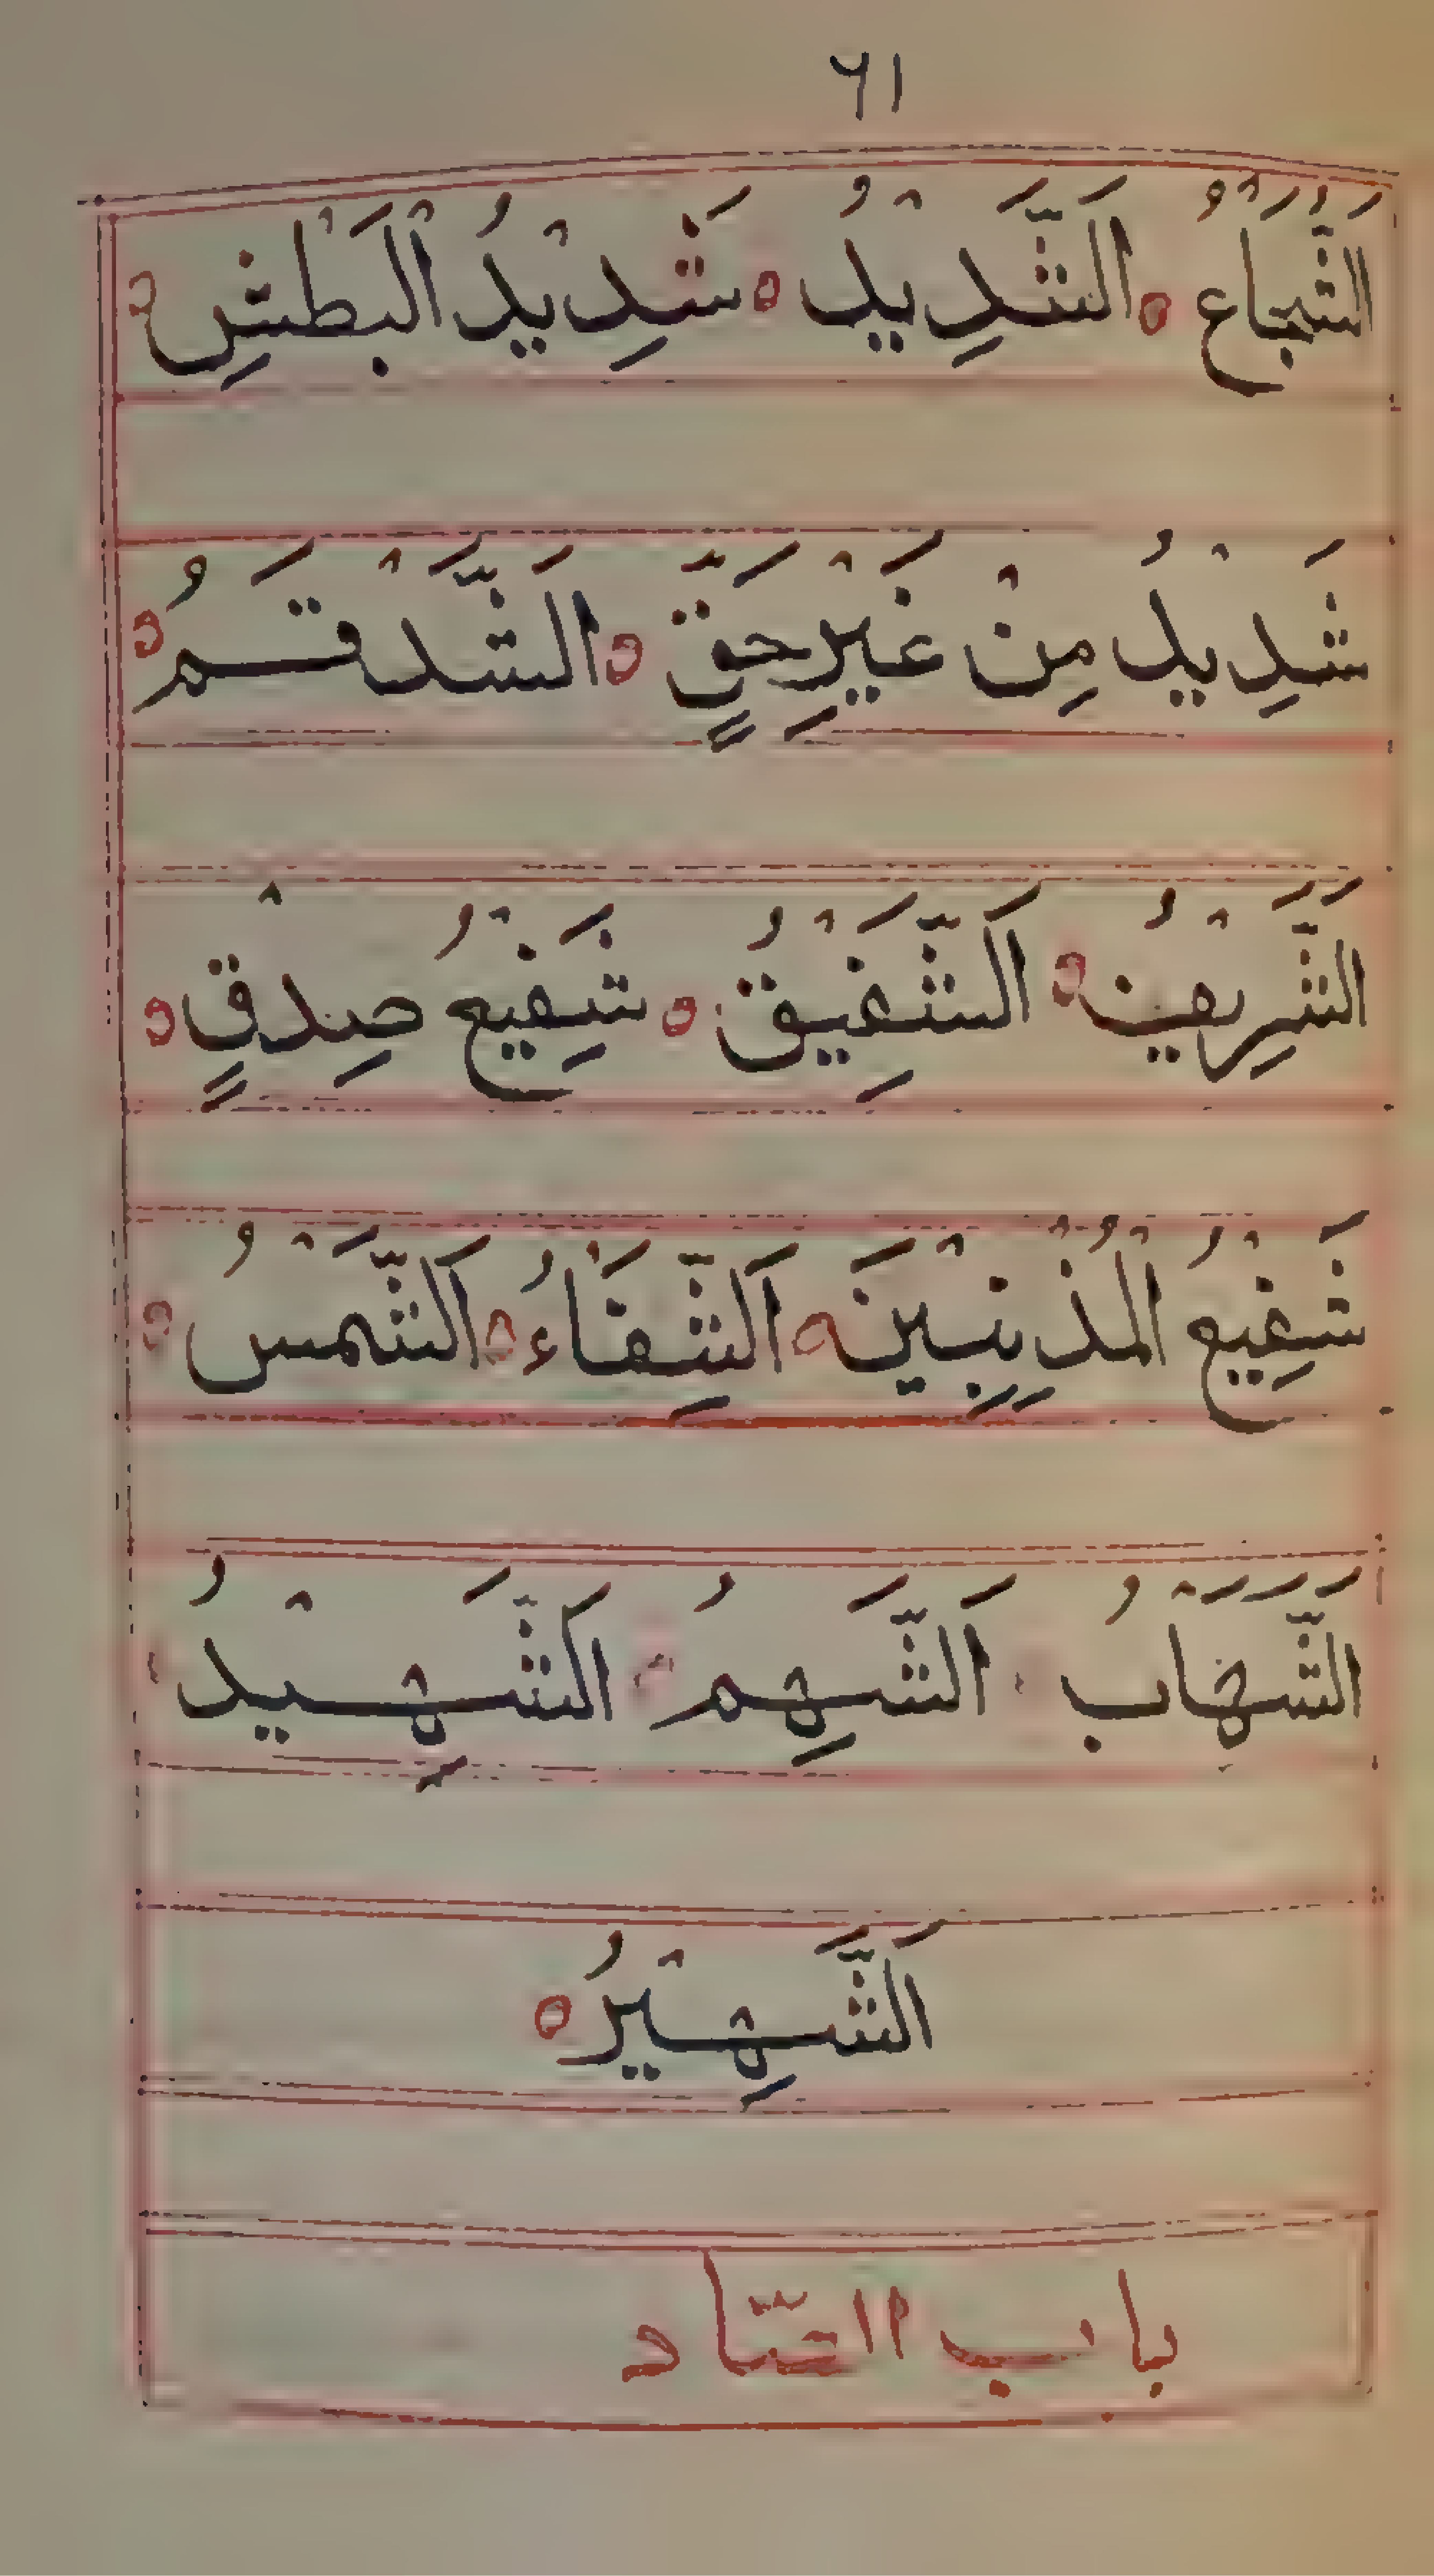 ٦١
الشُّجَاعُ ه الشَّدِيْدُ ه شَدِيْدُ الْبَطْشِ ه
شَدِيْدٌ مِنْ غَيْرِ حَقٍّ ه الشَّدْقَمُ ه
الشَّرِيْفُ ه اَلشَّفِيْقُ ه شَفِيْعُ صِدْقٍ ه
شَفِيْعُ الْمُذْنِبِيْنَ ه اَلشِّفَاءُ ه اَلشَّمْسُ ه
الشَّهَابُ ه اَلشَّهِمُ ه اَلشَّهِيْدُ ه
اَلشَّهِيْرُ ه
باب الصّاد